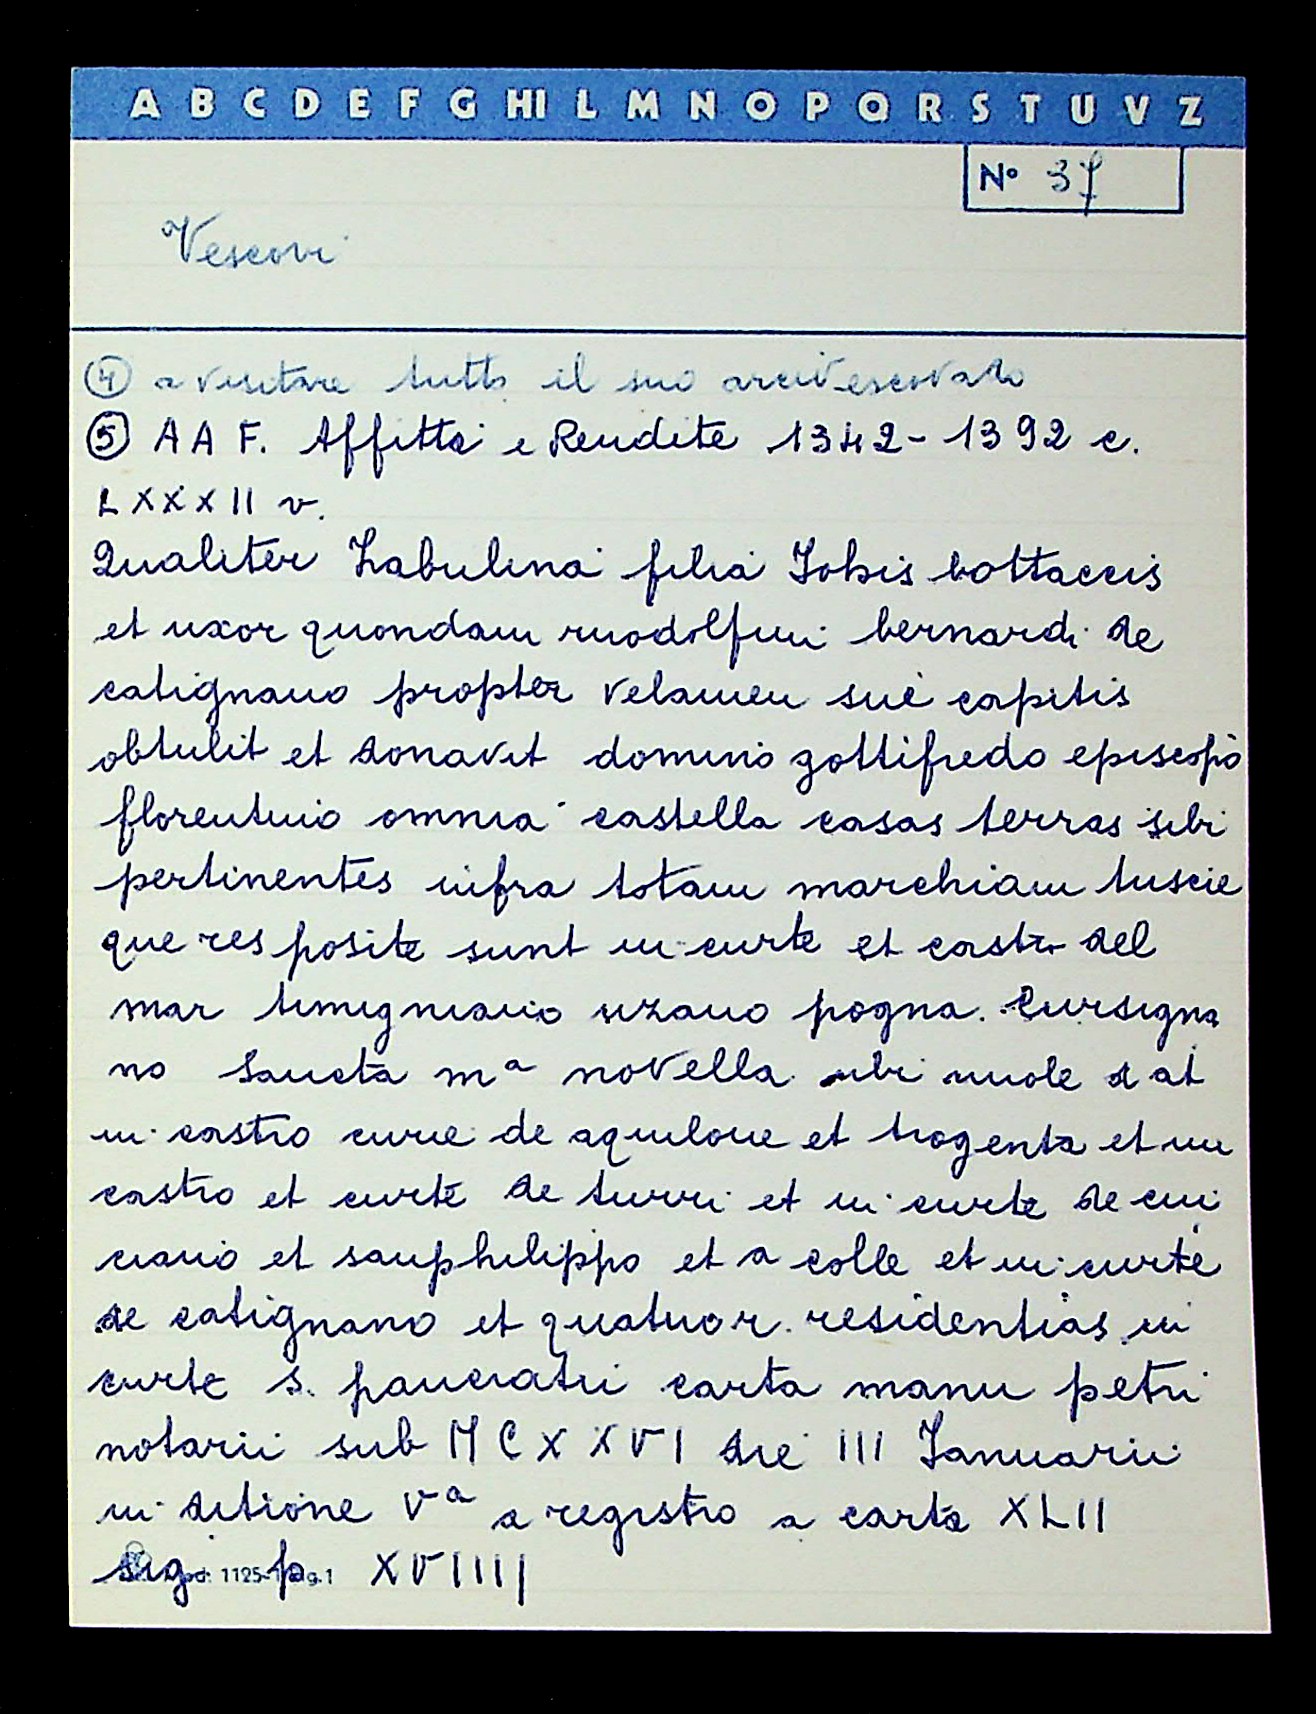 A B C D E F G HI L M N O P Q R S T U V Z
N° 37
Vescovi
④ a visitare tutto il suo arcivescovado
⑤ A A F. Affitti e Rendite 1342-1392 c.
LXXXII v.
Qualiter Zabulina filia Iohis bottaccis
et uxor quondam ruodolfini bernardi de
catignano propter velamen sue capitis
obtulit et donavit domino gottifredo episcopo
florentino omnia castella casas terras sibi
pertinentes infra totam marchiam tuscie
que res posite sunt in curte et castro del
mar timigniano uzano pogna. Cursigna
no Sancta mª novella ubi nuole dat
in castro curie de aquilone et trogenta et in
castro et curte de turri et in curte de cui
ciano et sanphilippo et a colle et in curte
de catignano et quatuor residentias in
curte s. pancratii carta manu petri
notarii sub MCXXVI die III Ianuarii
in ditione Vª a registro a carta XLII
sig. p. XVIIII
1125